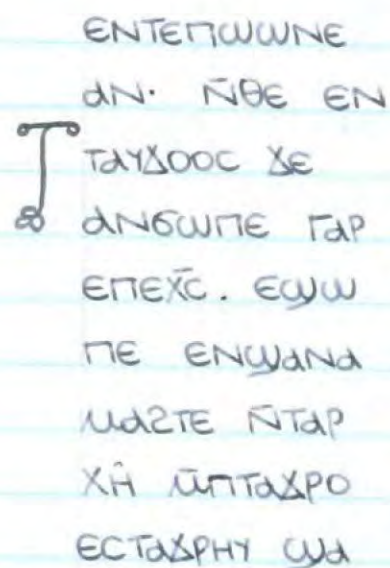 ⲉⲛⲧⲉⲡⲱⲱⲛⲉ
ⲁⲛ· ⲛ̄ⲑⲉ ⲉⲛ
ⲧⲁⲩϫⲟⲟⲥ ϫⲉ
ⲁⲛϭⲱⲡⲉ ⲅⲁⲣ
ⲉⲡⲉⲭ̄ⲥ̄. ⲉϣⲱ
ⲡⲉ ⲉⲛϣⲁⲛⲁ
ⲙⲁϩⲧⲉ ⲛ̄ⲧⲁⲣ
ⲭⲏ̂ ⲙ̄ⲡⲧⲁϫⲣⲟ
ⲉⲥⲧⲁϫⲣⲏⲩ ϣⲁ